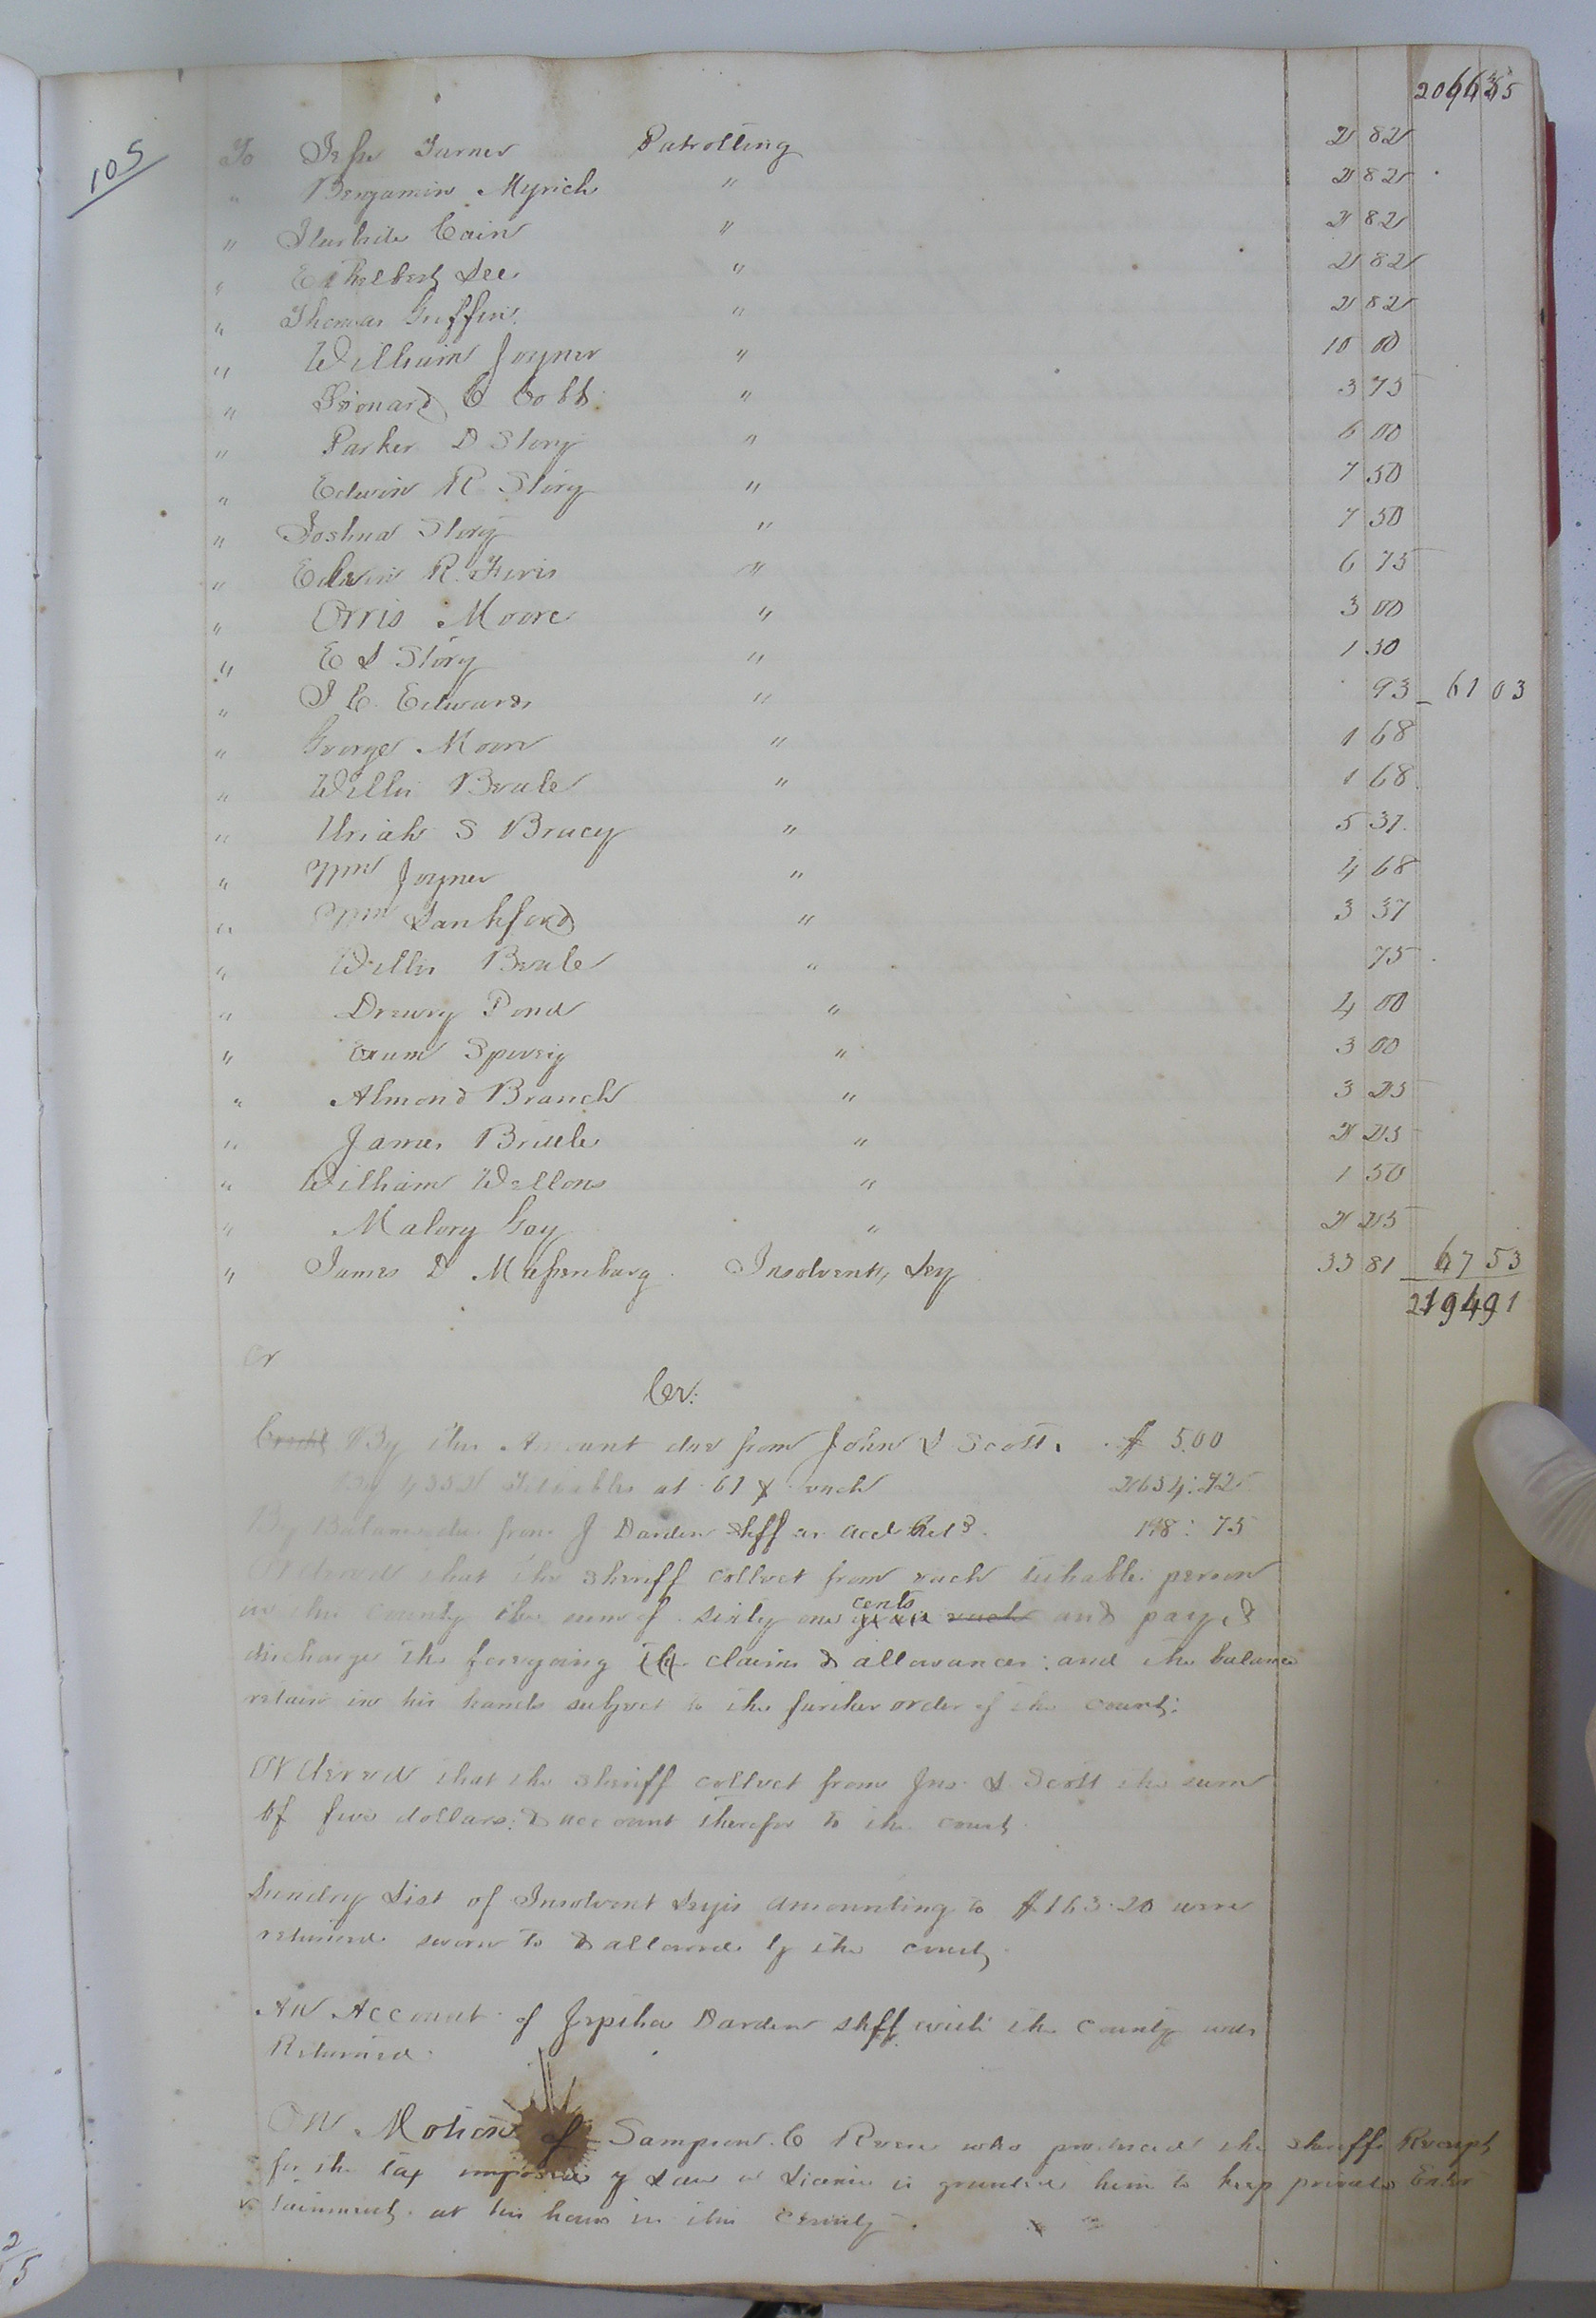 105
2066 35
To Jesse Turner Patrolling 2 82
" Benjamin Myrick " 2 82
" Cain " 2 82
" Ethelbert Lee " 2 82
" Thomas Griffin " 2 82
" William Joyner " 10 00
" Leonard C Cobb " 3 75
" Parker D Story " 6 00
" Edwin R Story " 7 50
" Joshua Story " 7 50
" Edwin R. " 6 75
" Orris Moore " 3 00
" E L Story " 1 50
" J E. Edwards " 93 61 03
" George Moore " 1 68
" Willis Beale " 1 68
" Uriah S Bracy " 5 37
" Wm Joyner " 4 68
" Wm Lankford " 3 37
" Willis Beale " 75
" Drewry Pond " 4 00
" Exum Spivey " 3 00
" Almond Branch " 3 25
" James Brittle " 2 25
" William Wellons " 1 50
" Malory Gay " 2 25
" James D Massenburg Insolvents, Levy 33 81 67 53
2194 91
Cr
Cr:
By this Amount due from John L Scott. $ 5.00
By 4352 Titheables at 61 ¢ each 2654:72
By Balance due from J Darden Shff as acct Retd. 198: 75
Ordered that the sheriff collect from each titheable person
in the county the sum of sixty one cents each and pay &
discharge the foregoing claims & allowances: and the balance
retain in his hands subject to the further order of the court:
Ordered that the sheriff collect from Jno. L. Scott the sum
of five dollars: & account therefor to the court
Sundry List of Insolvent Levies amounting to $163.20 were
returned sworn to & allowed by the court.
An Account of Jeptha Darden shff with the county was
Returned.
On Motion of Sampson C Reese who produced the sheriffs Receipt
for the tax imposed by Law a License is granted him to keep private Enter
tainment at his house in this county.